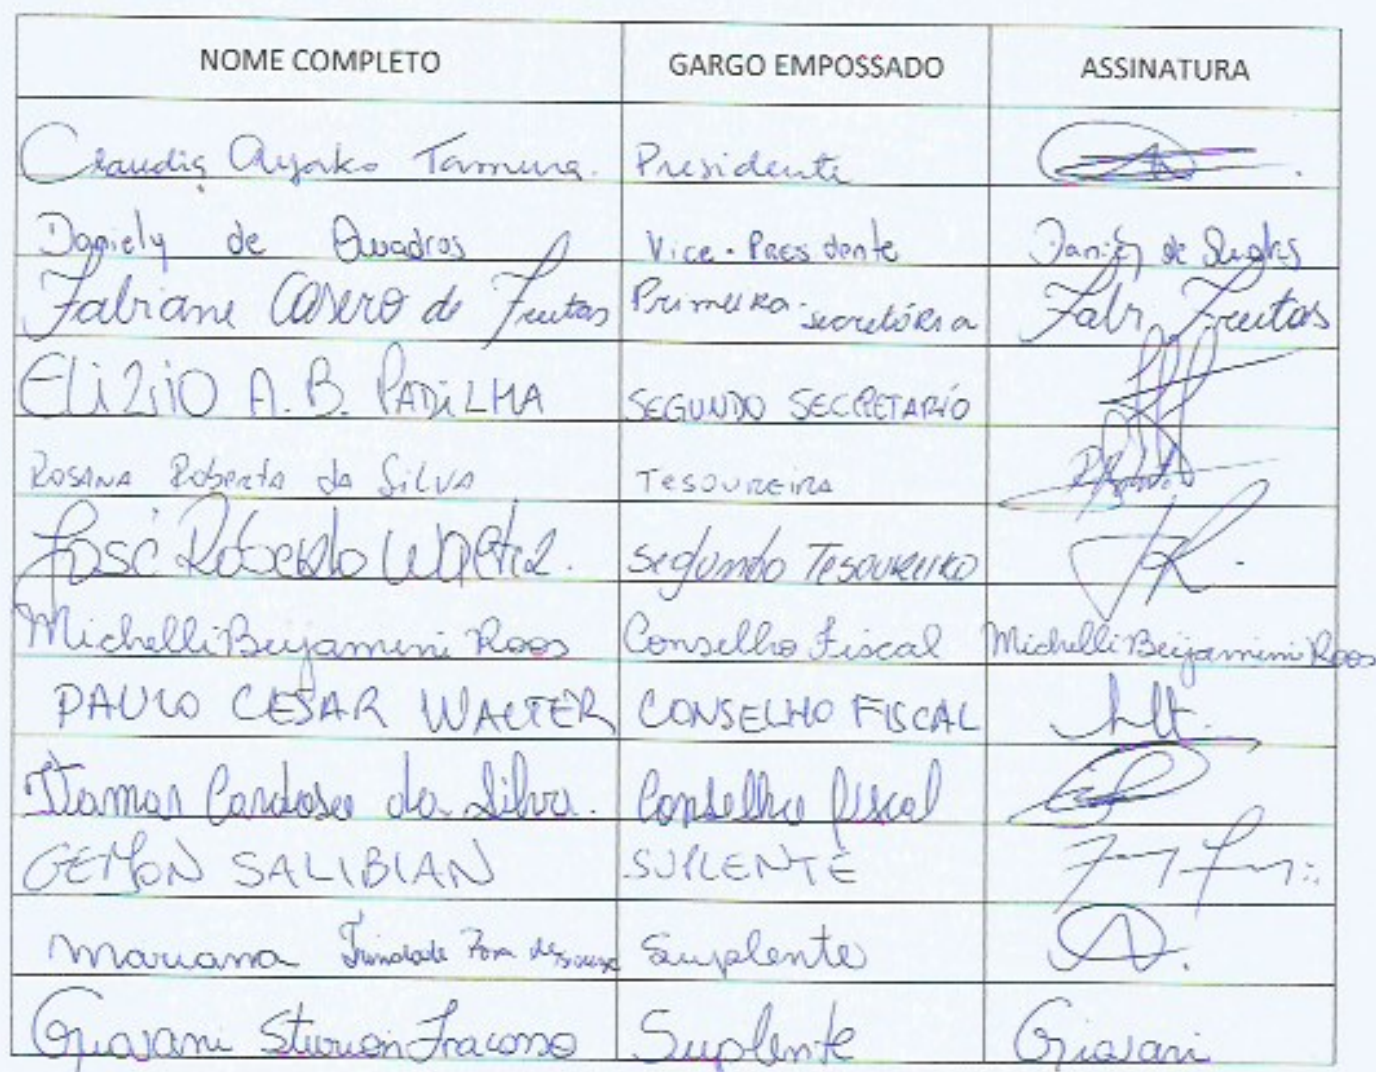 NOME COMPLETO GARGO EMPOSSADO ASSINATURA
Claudia Ayako Tamura. Presidente
Daniely de Quadros Vice-Presidente Daniely de Quadros
Fabiane Casero de Freitas Primeira secretária Fabi Freitas
ELIZIO A. B. PADILHA SEGUNDO SECRETARIO
ROSANA Roberta da SILVA TESOUREIRA
José Roberto Walter. Segundo Tesoureiro
Michelli Beijamini Roos Conselho Fiscal Michelli Beijamini Roos
PAULO CESAR WALTER CONSELHO FISCAL
Itamar Cardoso da Silva. Conselho fiscal
SALIBIAN SUPLENTE
Mariana Trindade de Souza Suplente
Giovani Sturion Fracasso Suplente Giovani